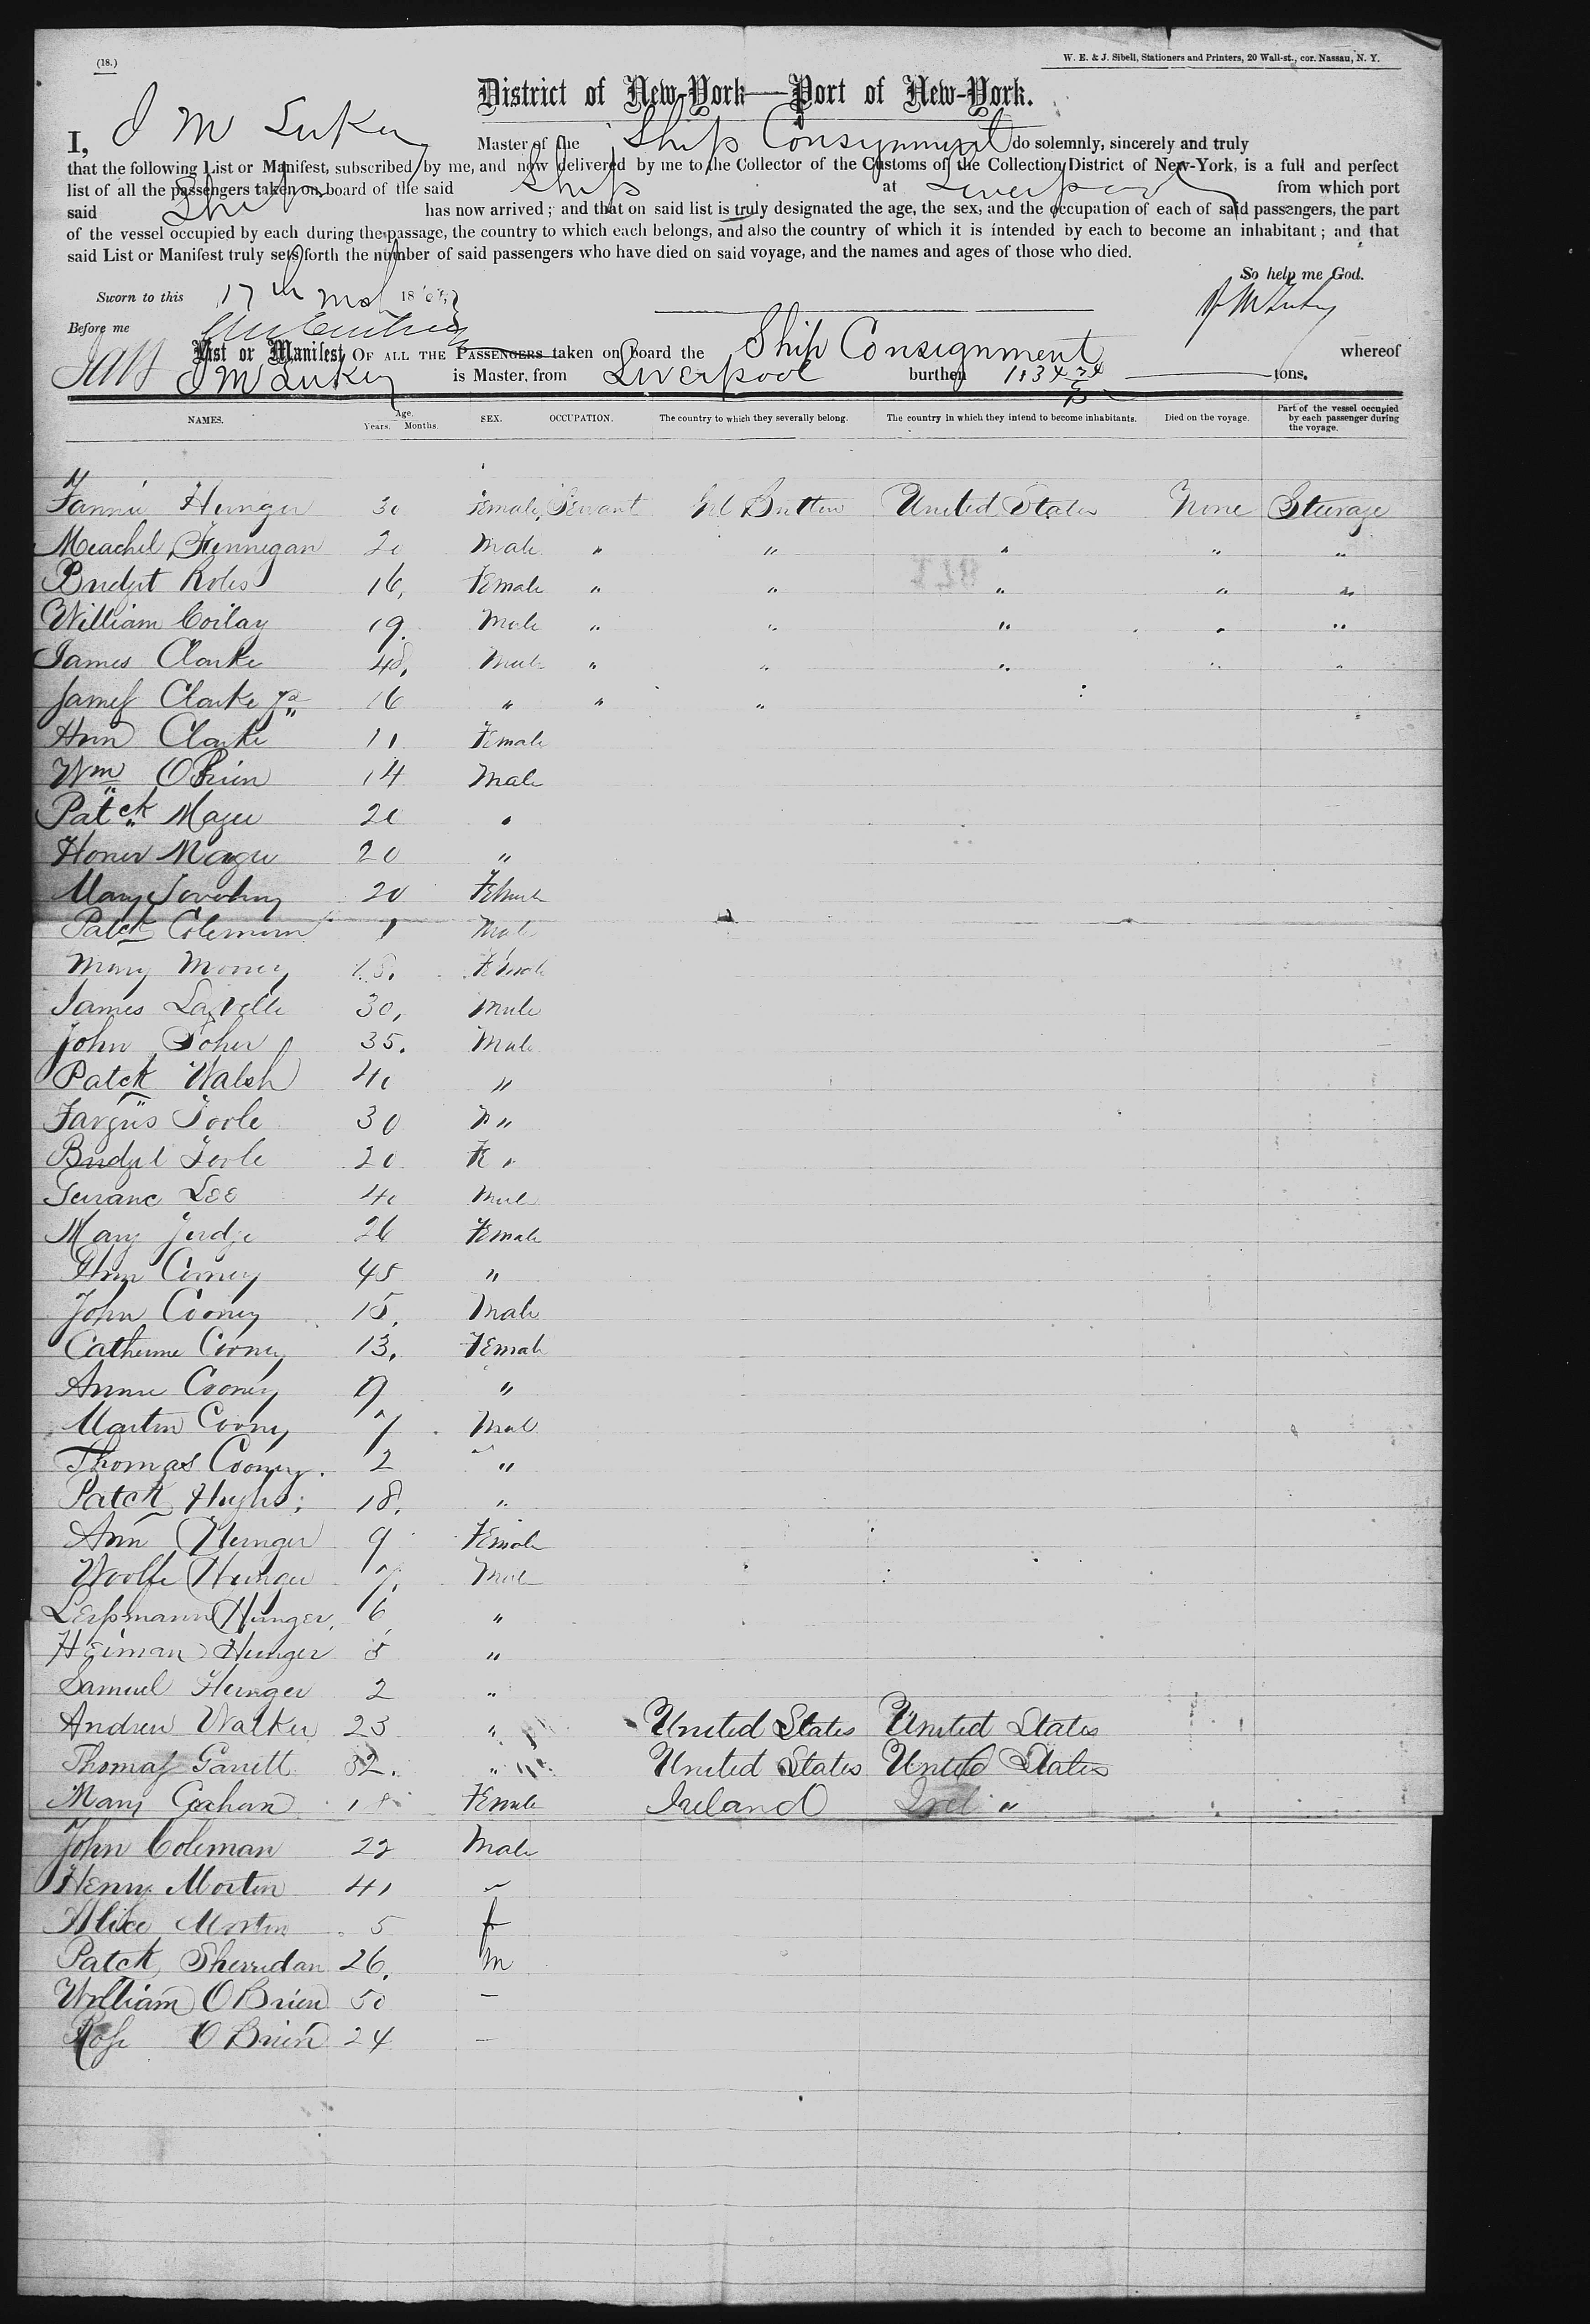 (18.)
W. E. & J. Sibell, Stationers and Printers, 20 Wall-st., cor. Nassau, N. Y.
District of New-York—Port of New-York.
I, J M Lukey Master of the Ship Consignment do solemnly, sincerely and truly
that the following List or Manifest, subscribed by me, and now delivered by me to the Collector of the Customs of the Collection District of New-York, is a full and perfect
list of all the passengers taken on board of the said Ship at Liverpool from which port
said Ship has now arrived; and that on said list is truly designated the age, the sex, and the occupation of each of said passengers, the part
of the vessel occupied by each during the passage, the country to which each belongs, and also the country of which it is intended by each to become an inhabitant; and that
said List or Manifest truly sets forth the number of said passengers who have died on said voyage, and the names and ages of those who died.
So help me God.
Sworn to this 17th 18
J M Lukey
Before me
List or Manifest OF ALL THE PASSENGERS taken on board the Ship Consignment whereof
J M Lukey is Master, from Liverpool burthen 1134 tons.
NAMES. Age. Years. Months. SEX. OCCUPATION. The country to which they severally belong. The country in which they intend to become inhabitants. Died on the voyage. Part of the vessel occupied by each passenger during the voyage.
Fannie Hunger 30 Female Servant Gt Britten United States None Sturage
Meachel Finnegan 20 Male " " " " "
Bridget 16, Female " " " " "
William 19. Male " " " " "
James Clarke 48, Male " " " " "
James Clarke Jr 16 " " "
Ann Clarke 11 Female
Wm OBrien 14 Male
Patck Magee 20 "
Honer Magee 20 "
Mary 20 Female
Patck Coleman 1 Male
Mary 18. Female
James Lavelle 30, Male
John 35. Male
Patck Walsh 40 "
Fargus Toole 30 "
Bridget Toole 20 F "
Lee 40 Male
Mary Judge 26 Female
Ann Cooney 45 "
John Cooney 15. Male
Catherine Cooney 13. Female
Annie Cooney 9 "
Martin Cooney 7 Male
Thomas Cooney. 2 "
Patck Hughs 18. "
Ann Hunger 9 Female
Woolfe Hunger 7. Male
Hunger 6 "
Heiman Hunger 5 "
Samuel Hunger 2 "
Andrew Walker 23 " United States United States
Thomas Garrett 32. " United States United States
Mary 18 Female Ireland "
John Coleman 22 Male
Henry Morton 41
Alice Morton 5 f
Patck Sherridan 26. m
William OBrien 50 –
Rose OBrien 24 –